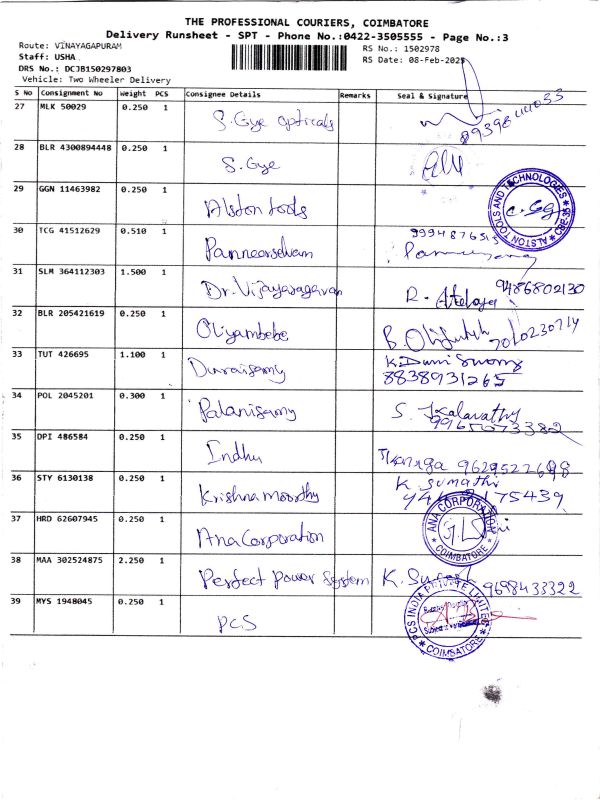 THE PROFESSIONAL COURIERS, COIMBATORE
Delivery Runsheet - SPT - Phone No.:0422-3505555 - Page No.:3
Route: VINAYAGAPURAM
RS No.: 1502978
Staff: USHA
RS Date: 08-Feb-202
DRS No.: DCJB150297803
Vehicle: Two Wheeler Delivery
S No Consignment No Weight PCS Consignee Details Remarks Seal & Signature
27 MLK 50029 0.250 1 S. Gye opticals
28 BLR 4300894448 0.250 1 S. Gye
29 GGN 11463982 0.250 1 Alston tools
ALSTON TOOLS AND TECHNOLOGIES * CBE-35 *
30 TCG 41512629 0.510 1 Panneerselvam
31 SLM 364112303 1.500 1 Dr. Vijayaragavan 9486802130
32 BLR 205421619 0.250 1 Oliyambebe
33 TUT 426695 1.100 1 Duraisamy K.Durai Swamy
8838931265
34 POL 2045201 0.300 1 Palanisamy S.
35 DPI 486584 0.250 1 Indhu 9629522698
36 STY 6130138 0.250 1 Krishna moorthy K Sumathi
37 HRD 62607945 0.250 1 Ana Corporation
ANA CORPORATION * COIMBATORE *
38 MAA 302524875 2.250 1 Perfect Power System K. 9698433322
39 MYS 1948045 0.250 1 PCS
PCS INDIA PRIVATE LIMITED * COIMBATORE *